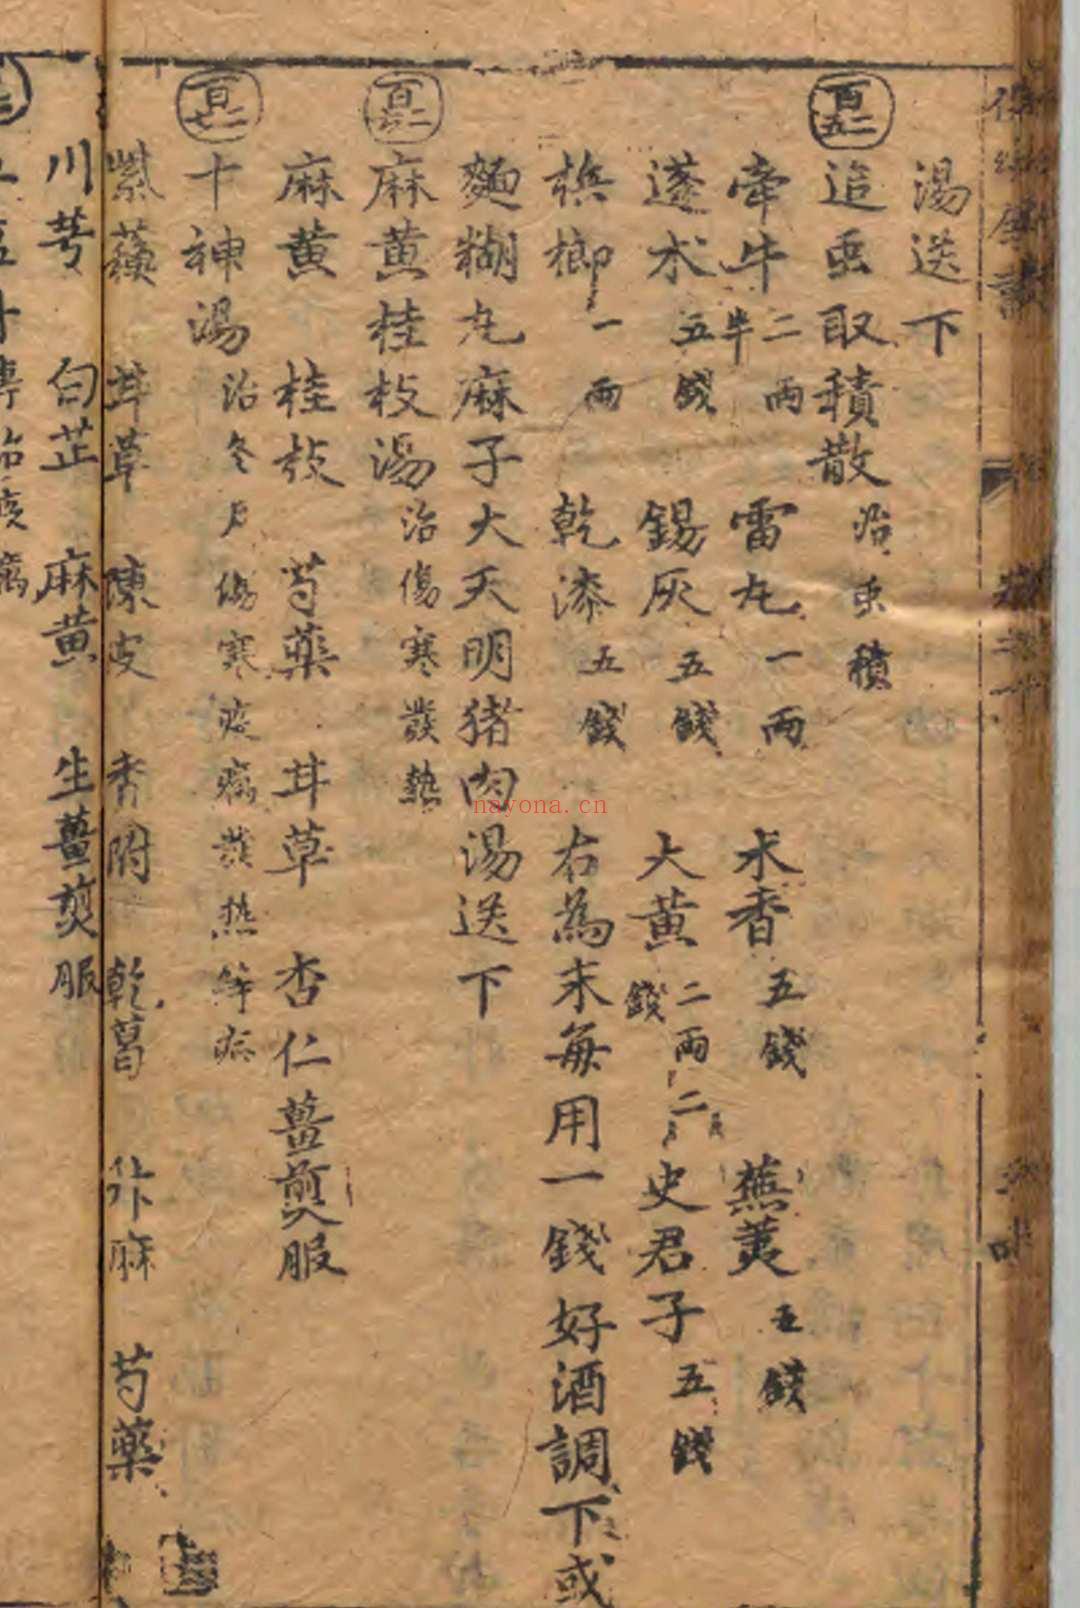 湯送下
百二五
追虫取積散 治虫積
牽牛二兩半 雷丸一兩 木香五錢 蕪荑五錢
蓬朮五錢 錫灰五錢 大黄二兩二錢 史君子五錢
梹榔一兩 乾漆五錢 右為末每用一錢好酒調下或
麵糊丸麻子大天明猪肉湯送下
百二六
麻黄桂枝湯 治傷寒發熱
麻黄 桂枝 芍藥 甘草 杏仁 薑煎服
百二七
十神湯 治冬月傷寒疫癘發热等症
紫蘇 甘草 陳皮 香附 乾葛 升麻 芍藥
川芎 白芷 麻黄 生薑煎服
nayona.cn